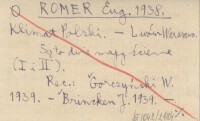 ROMER Eug. 1938.
Klimat Polski. — Lwów Warszawa.
Są to dwie mapy ścienne
(I i II).
Rec.: Gorczyński W.
1939. — Brincken J. 1939. —